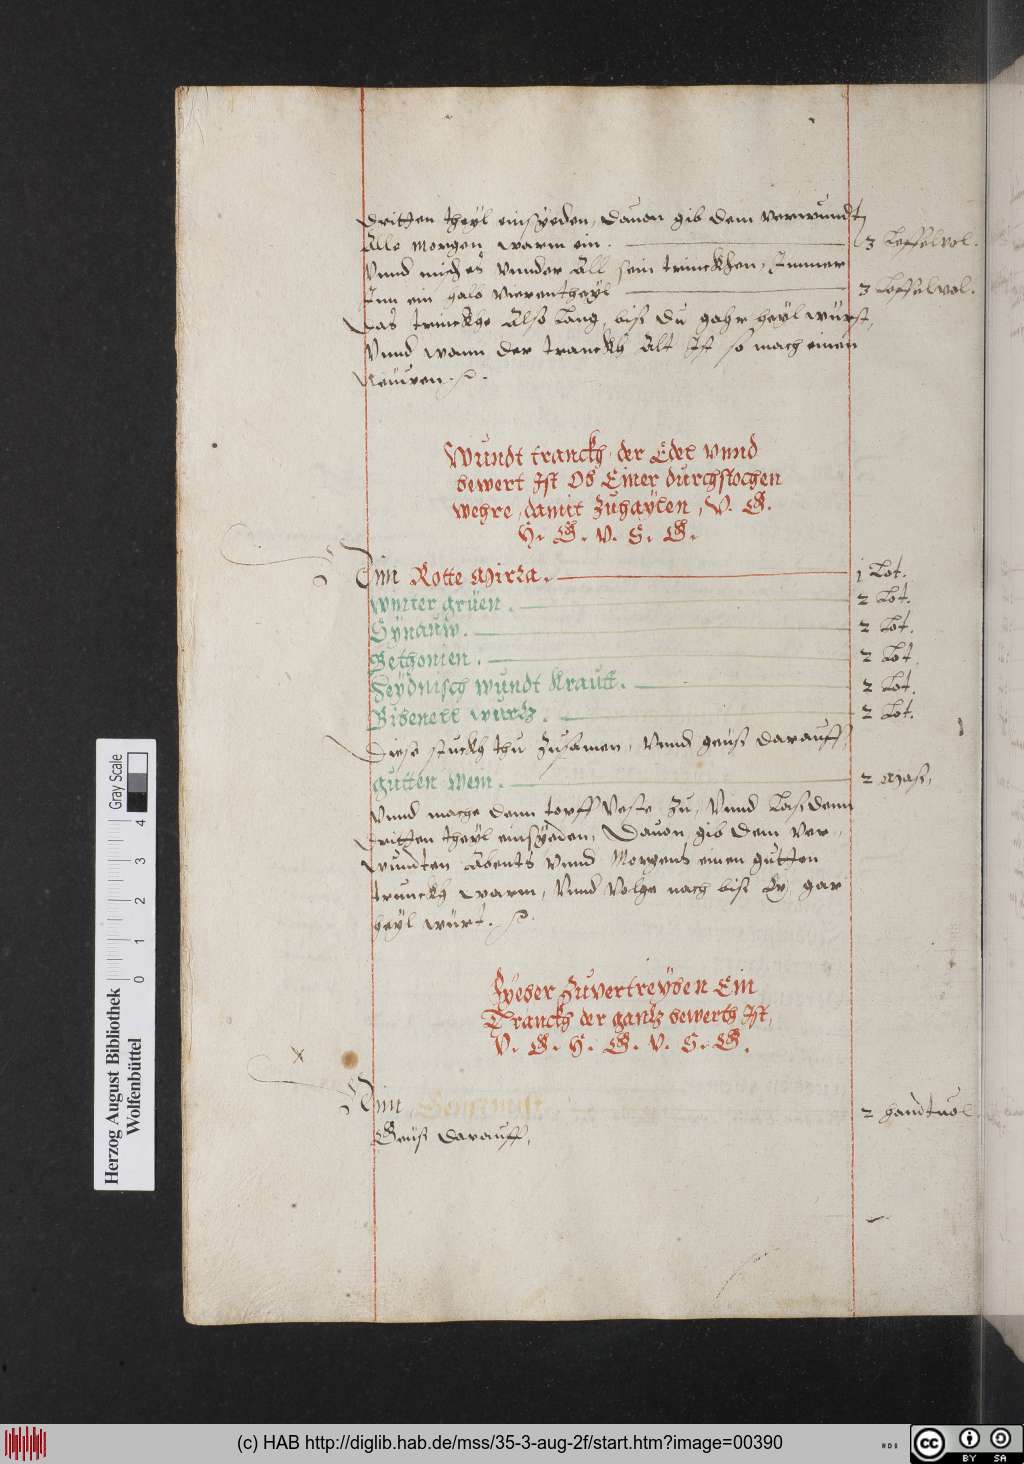 dritten theyl einsÿeden, dauon gib dem verwundt
Alle morgen warm ein. 3 Leffelvol.
Vnnd misch es vnnder All sein trinckhen, Immer
Inn ein halb Vierentheyl 3 Leffelvol.
Das trinckhe Also Lang, biß du gahr heyl würst,
Vnnd wann der tranckh Alt Ist so mach einen
Neüwen.
Wundt tranckh der Edel vnnd
bewert Ist Ob Einer durchstochen
wehre, damit Zuhaÿlen, V. G.
H. G. V. S. G.
Nim Rotte Mirra. 1 Lot.
Winter grüen. 2 Lot.
Sÿnauw. 2 Lot.
Bethonien. 2 Lot.
Heÿdnisch wundt Krautt. 2 Lot.
Bibenell wurtz. 2 Lot.
Diese stuckh thu Zusamen, Vnnd geuß darauff,
gutten Wein. 2 Mass,
Vnnd mache denn topff Veste Zu, Vnnd Laß denn
dritten theyl einsÿeden, Dauon gib dem Ver-
wundten Abents vnnd Morgens einen gutten
trunckh warm, Vnnd Volge nach biß Er gar
heyl würt.
Fyeber Zuvertreÿben Ein
Tranckh der gantz bewerth Ist,
V. G. H. G. V. S. G.
Nim 2 handtuol
Geuß darauff,
Herzog August Bibliothek
Wolfenbüttel
0 1 2 3 4
Gray Scale
(c) HAB http://diglib.hab.de/mss/35-3-aug-2f/start.htm?image=00390
cc BY SA